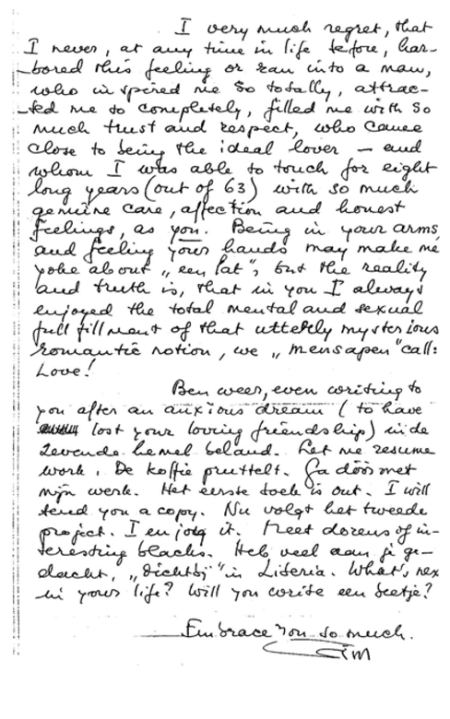 I very much regret, that
I never, at any time in life before, har-
bored this feeling or ran into a man,
who inspired me so totally, attrac-
ted me so completely, filled me with so
much trust and respect, who came
close to being the ideal lover – and
whom I was able to touch for eight
long years (out of 63) with so much
genuine care, affection and honest
feelings, as you. Being in your arms,
and feeling your hands may make me
yoke about „een lat", but the reality
and truth is, that in you I always
enjoyed the total mental and sexual
full fillment of that utterly mysterious
romantic notion, we „mensapen" call:
Love!
Ben weer, even writing to
you after an anxious dream (to have
lost your loving friendship) in de
zevende hemel beland. Let me resume
work. De koffie pruttelt. Ga door met
mijn werk. Het eerste boek is out. I will
send you a copy. Nu volgt het tweede
project. I enjoy it. Meet dozens of in-
teresting blacks. Heb veel aan je ge-
dacht, „dichtbij" in Liberia. What's nex
in your life? Will you write een beetje?
Embrace you so much.